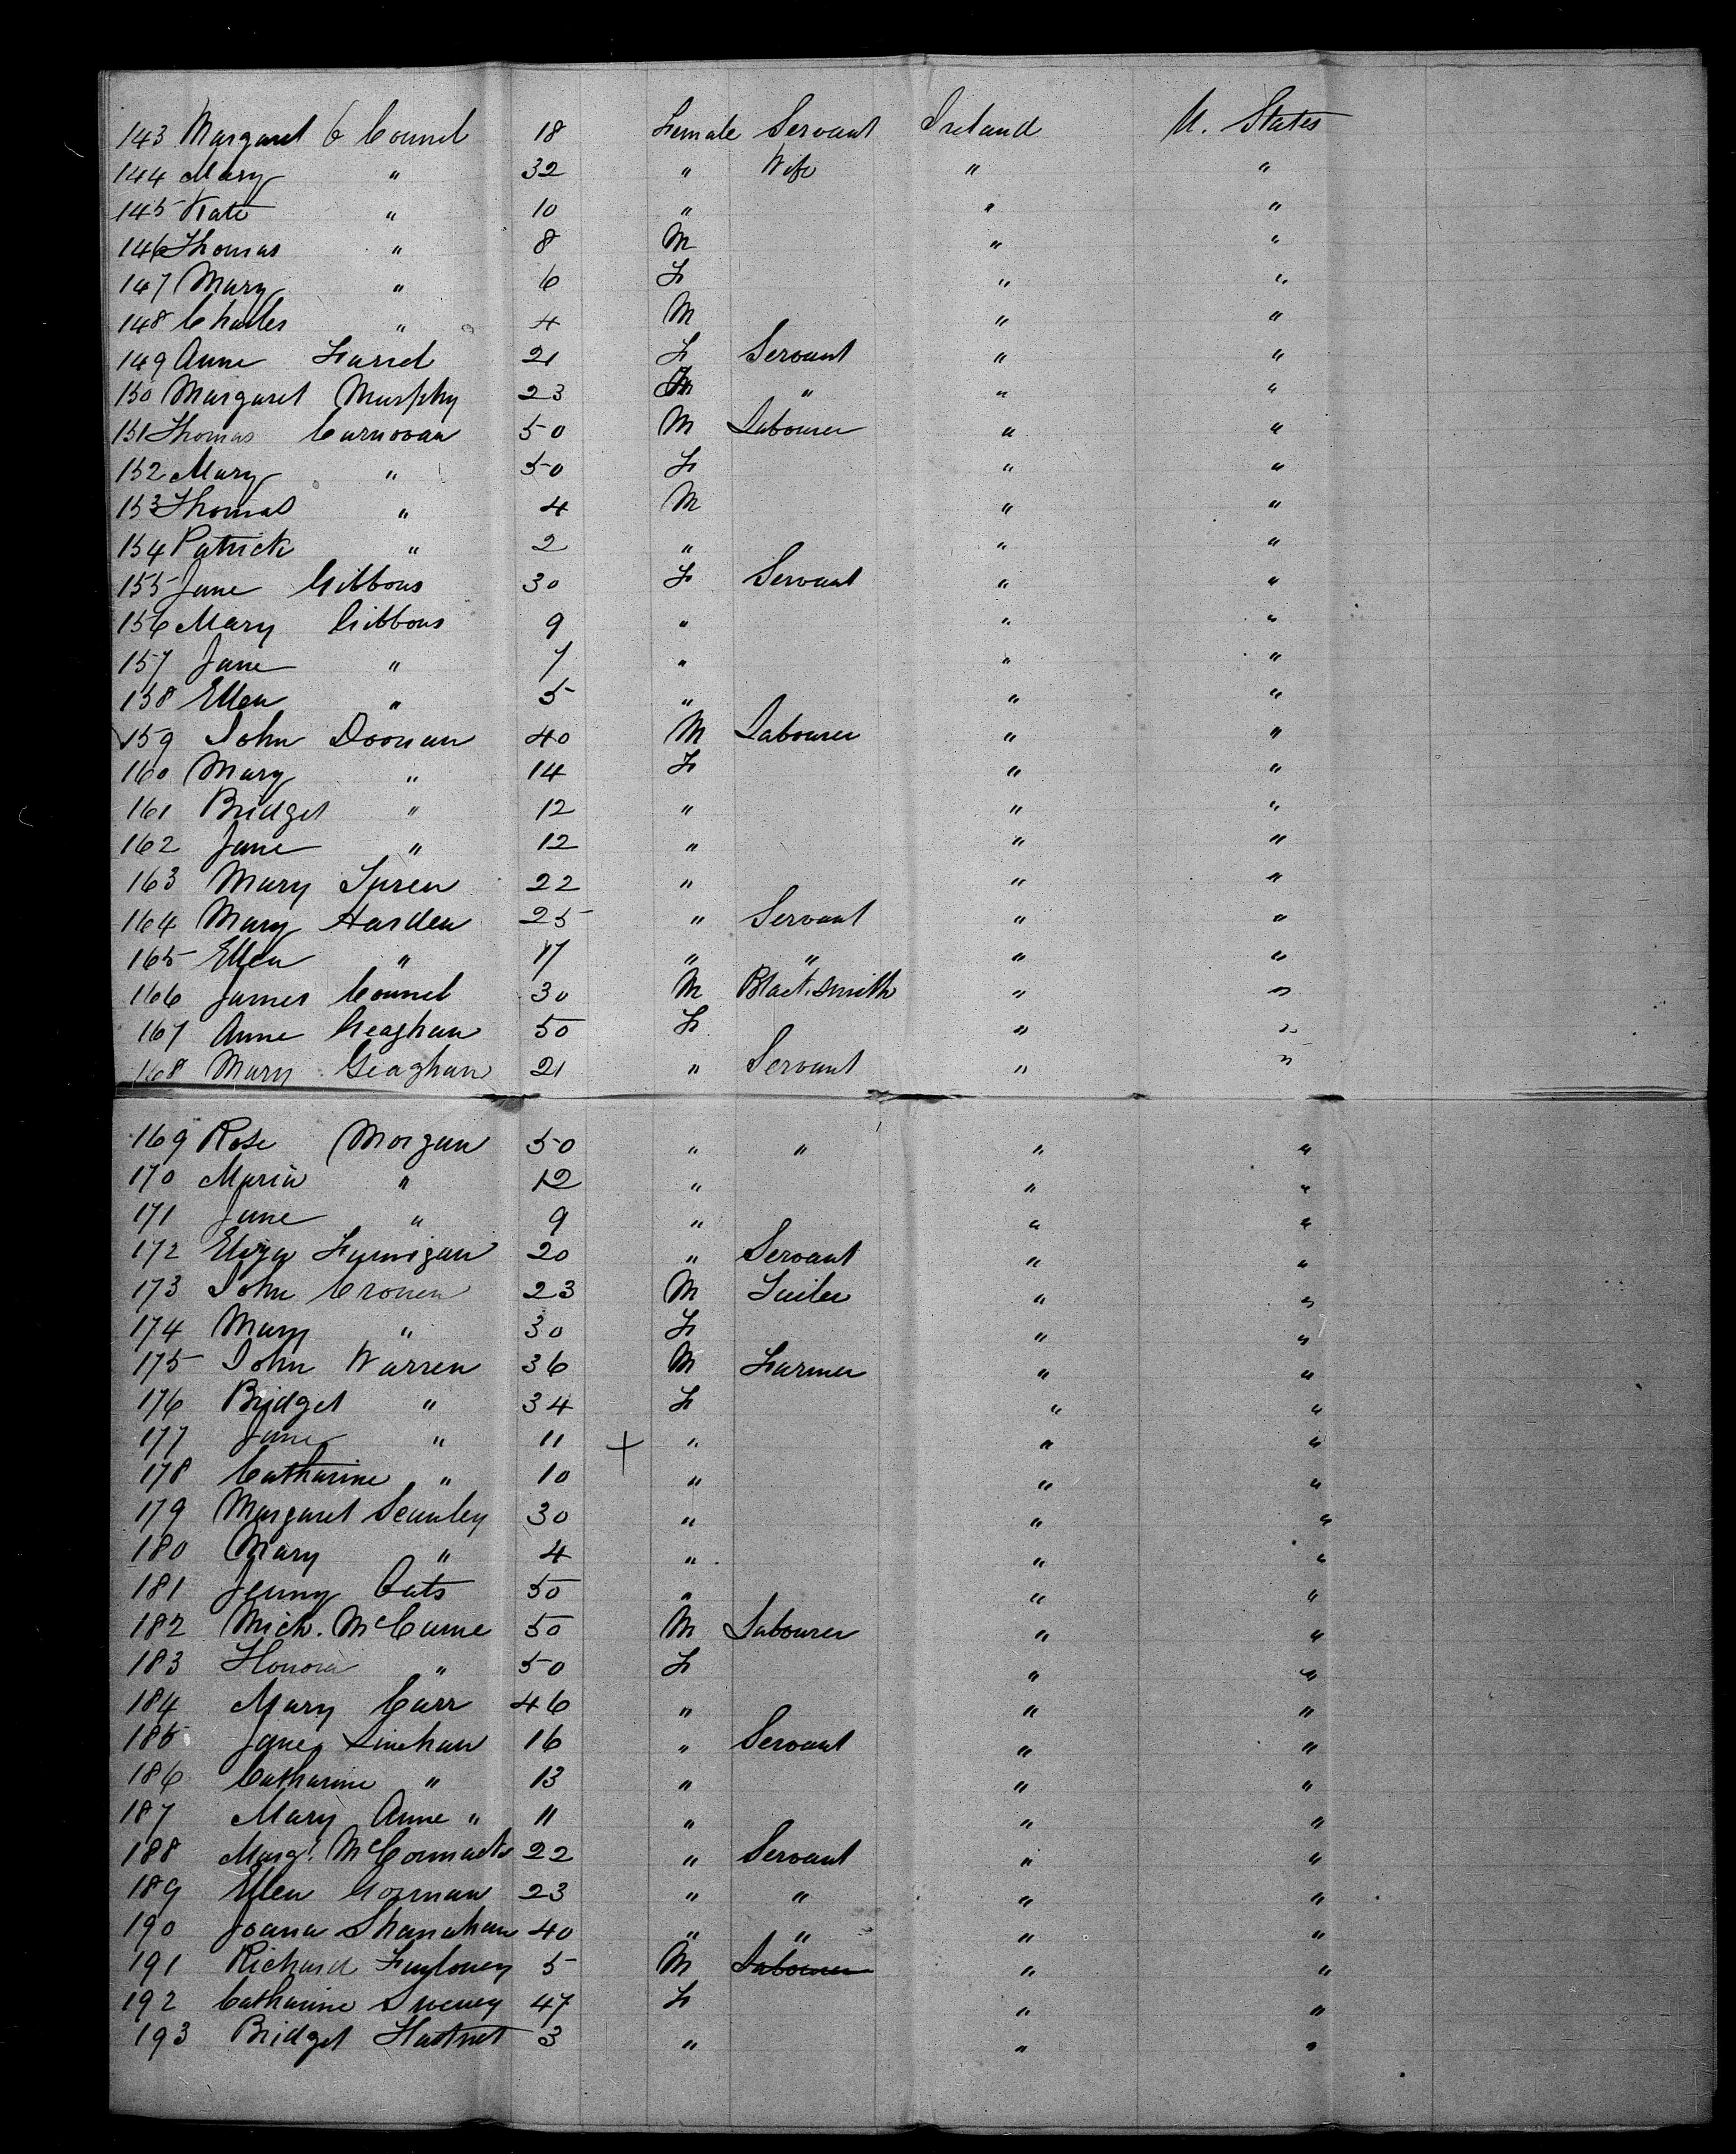 143 Margaret O Connel 18 Female Servant Ireland U. States
144 Mary " 32 " Wife " "
145 Kate " 10 " " "
146 Thomas " 8 M " "
147 Mary " 6 F " "
148 Charles " 4 M " "
149 Anne Farrel 21 F Servant " "
150 Margaret Murphy 23 F " " "
151 Thomas Carnovan 50 M Labourer " "
152 Mary " 50 F " "
153 Thomas " 4 M " "
154 Patrick " 2 " " "
155 Jane Gibbons 30 F Servant " "
156 Mary Gibbons 9 " " "
157 Jane " 7 " " "
158 Ellen " 5 " " "
159 John Doonan 40 M Labourer " "
160 Mary " 14 F " "
161 Bridget " 12 " " "
162 Jane " 12 " " "
163 Mary 22 " " "
164 Mary Harden 25 " Servant " "
165 Ellen " 17 " " " "
166 James Connel 30 M Blacksmith " "
167 Anne Geaghan 50 F " "
168 Mary Geaghan 21 " Servant " "
169 Rose Morgan 50 " " " "
170 Maria " 12 " " "
171 Jane " 9 " " "
172 Eliza Funnigan 20 " Servant " "
173 John Cronen 23 M " "
174 Mary " 30 F " "
175 John Warren 36 M Farmer " "
176 Bridget " 34 F " "
177 Jane " 11 + " " "
178 Catharine " 10 " " "
179 Margaret Scanley 30 " " "
180 Mary " 4 " " "
181 Jenny Oats 50 " " "
182 Mich. McCune 50 M Labourer " "
183 Honora " 50 F " "
184 Mary Carr 46 " " "
185 Jane Linehan 16 " Servant " "
186 Catharine " 13 " " "
187 Mary Anne " 11 " " "
188 Margt. McCormack 22 " Servant " "
189 Ellen Gorman 23 " " " "
190 Joana Shanahan 40 " " " "
191 Richard 5 M Labourer " "
192 Catharine Sweney 47 F " "
193 Bridget Hartnet 3 " " "